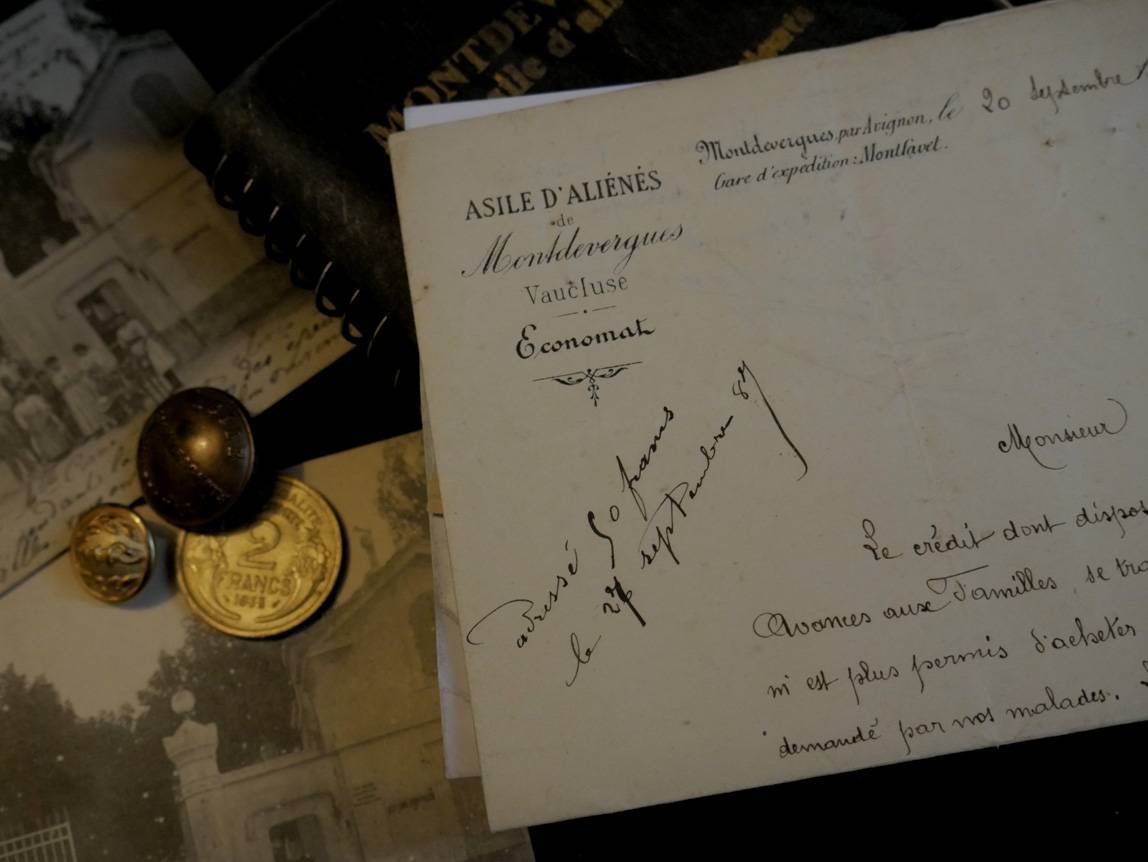 MONTDEV
asile d'ali
ASILE D'ALIÉNÉS
de
Montdevergues
Vaucluse
Economat
Montdevergues, par Avignon, le 20 Septembre 1
Gare d'expédition: Montfavet.
adressé 50 francs
le 27 septembre 87
Monsieur
Le crédit dont dispos
Avances aux Familles, se tro
m'est plus permis d'acheter
demandé par nos malades. L
2
FRANCS